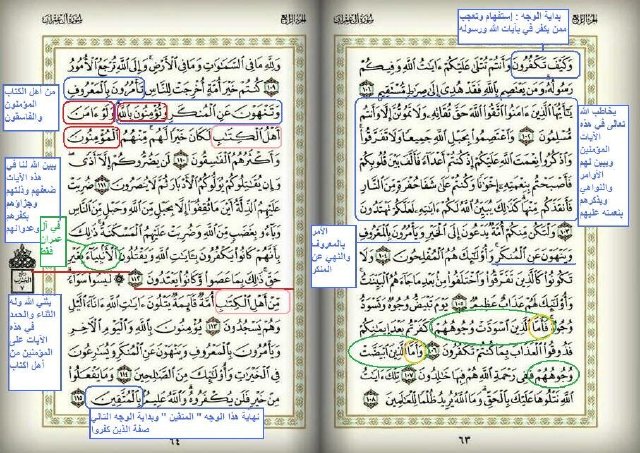 سُورَةُ آلِ عِمْرَانَ
الجزء الرابع
بداية الوجه : إستفهام وتعجب
ممن يكفر في بأيات الله ورسوله
وَكَيْفَ تَكْفُرُونَ وَأَنتُمْ تُتْلَىٰ عَلَيْكُمْ ءَايَٰتُ ٱللَّهِ وَفِيكُمْ
رَسُولُهُۥ وَمَن يَعْتَصِم بِٱللَّهِ فَقَدْ هُدِىَ إِلَىٰ صِرَٰطٍ مُّسْتَقِيمٍ ١٠١
يَٰٓأَيُّهَا ٱلَّذِينَ ءَامَنُوا۟ ٱتَّقُوا۟ ٱللَّهَ حَقَّ تُقَاتِهِۦ وَلَا تَمُوتُنَّ إِلَّا وَأَنتُم
مُّسْلِمُونَ ١٠٢ وَٱعْتَصِمُوا۟ بِحَبْلِ ٱللَّهِ جَمِيعًا وَلَا تَفَرَّقُوا۟
وَٱذْكُرُوا۟ نِعْمَتَ ٱللَّهِ عَلَيْكُمْ إِذْ كُنتُمْ أَعْدَآءً فَأَلَّفَ بَيْنَ قُلُوبِكُمْ
فَأَصْبَحْتُم بِنِعْمَتِهِۦٓ إِخْوَٰنًا وَكُنتُمْ عَلَىٰ شَفَا حُفْرَةٍ مِّنَ ٱلنَّارِ
فَأَنقَذَكُم مِّنْهَا كَذَٰلِكَ يُبَيِّنُ ٱللَّهُ لَكُمْ ءَايَٰتِهِۦ لَعَلَّكُمْ تَهْتَدُونَ
١٠٣ وَلْتَكُن مِّنكُمْ أُمَّةٌ يَدْعُونَ إِلَى ٱلْخَيْرِ وَيَأْمُرُونَ بِٱلْمَعْرُوفِ
وَيَنْهَوْنَ عَنِ ٱلْمُنكَرِ وَأُو۟لَٰٓئِكَ هُمُ ٱلْمُفْلِحُونَ ١٠٤ وَلَا
تَكُونُوا۟ كَٱلَّذِينَ تَفَرَّقُوا۟ وَٱخْتَلَفُوا۟ مِنۢ بَعْدِ مَا جَآءَهُمُ ٱلْبَيِّنَٰتُ
وَأُو۟لَٰٓئِكَ لَهُمْ عَذَابٌ عَظِيمٌ ١٠٥ يَوْمَ تَبْيَضُّ وُجُوهٌ وَتَسْوَدُّ
وُجُوهٌ فَأَمَّا ٱلَّذِينَ ٱسْوَدَّتْ وُجُوهُهُمْ أَكَفَرْتُم بَعْدَ إِيمَٰنِكُمْ
فَذُوقُوا۟ ٱلْعَذَابَ بِمَا كُنتُمْ تَكْفُرُونَ ١٠٦ وَأَمَّا ٱلَّذِينَ ٱبْيَضَّتْ
وُجُوهُهُمْ فَفِى رَحْمَةِ ٱللَّهِ هُمْ فِيهَا خَٰلِدُونَ ١٠٧ تِلْكَ ءَايَٰتُ
ٱللَّهِ نَتْلُوهَا عَلَيْكَ بِٱلْحَقِّ وَمَا ٱللَّهُ يُرِيدُ ظُلْمًا لِّلْعَٰلَمِينَ ١٠٨
٦٣
يخاطب الله
تعالى في هذه
الآيات
المؤمنين
ويبين لهم
الأوامر
والنواهي
ويذكرهم
بنعمته عليهم
الأمر
بالمعروف
والنهي عن
المنكر
سُورَةُ آلِ عِمْرَانَ
الجزء الرابع
وَلِلَّهِ مَا فِى ٱلسَّمَٰوَٰتِ وَمَا فِى ٱلْأَرْضِ وَإِلَى ٱللَّهِ تُرْجَعُ ٱلْأُمُورُ
١٠٩ كُنتُمْ خَيْرَ أُمَّةٍ أُخْرِجَتْ لِلنَّاسِ تَأْمُرُونَ بِٱلْمَعْرُوفِ
وَتَنْهَوْنَ عَنِ ٱلْمُنكَرِ وَتُؤْمِنُونَ بِٱللَّهِ وَلَوْ ءَامَنَ
أَهْلُ ٱلْكِتَٰبِ لَكَانَ خَيْرًا لَّهُم مِّنْهُمُ ٱلْمُؤْمِنُونَ
وَأَكْثَرُهُمُ ٱلْفَٰسِقُونَ ١١٠ لَن يَضُرُّوكُمْ إِلَّآ أَذًى
وَإِن يُقَٰتِلُوكُمْ يُوَلُّوكُمُ ٱلْأَدْبَارَ ثُمَّ لَا يُنصَرُونَ ١١١ ضُرِبَتْ
عَلَيْهِمُ ٱلذِّلَّةُ أَيْنَ مَا ثُقِفُوٓا۟ إِلَّا بِحَبْلٍ مِّنَ ٱللَّهِ وَحَبْلٍ مِّنَ ٱلنَّاسِ
وَبَآءُو بِغَضَبٍ مِّنَ ٱللَّهِ وَضُرِبَتْ عَلَيْهِمُ ٱلْمَسْكَنَةُ ذَٰلِكَ
بِأَنَّهُمْ كَانُوا۟ يَكْفُرُونَ بِـَٔايَٰتِ ٱللَّهِ وَيَقْتُلُونَ ٱلْأَنۢبِيَآءَ بِغَيْرِ
حَقٍّ ذَٰلِكَ بِمَا عَصَوا۟ وَّكَانُوا۟ يَعْتَدُونَ ١١٢ لَيْسُوا۟ سَوَآءً
مِّنْ أَهْلِ ٱلْكِتَٰبِ أُمَّةٌ قَآئِمَةٌ يَتْلُونَ ءَايَٰتِ ٱللَّهِ ءَانَآءَ ٱلَّيْلِ
وَهُمْ يَسْجُدُونَ ١١٣ يُؤْمِنُونَ بِٱللَّهِ وَٱلْيَوْمِ ٱلْءَاخِرِ
وَيَأْمُرُونَ بِٱلْمَعْرُوفِ وَيَنْهَوْنَ عَنِ ٱلْمُنكَرِ وَيُسَٰرِعُونَ
فِى ٱلْخَيْرَٰتِ وَأُو۟لَٰٓئِكَ مِنَ ٱلصَّٰلِحِينَ ١١٤ وَمَا يَفْعَلُوا۟
مِنْ خَيْرٍ فَلَن يُكْفَرُوهُ وَٱللَّهُ عَلِيمٌۢ بِٱلْمُتَّقِينَ ١١٥
٦٤
من أهل الكتاب
المؤمنون
والفاسقون
يبين الله لنا في
هذه الآيات
ضعفهم وذلتهم
وجزاؤهم
بكفرهم
وعدوانهم
في آل
عمران
فقط
ربع
الحزب
٧
يثني الله وله
الثناء والحمد
في هذه
الآيات على
المؤمنين من
أهل الكتاب
نهاية هذا الوجه " المتقين " وبداية الوجه التالي
صفة الذين كفروا